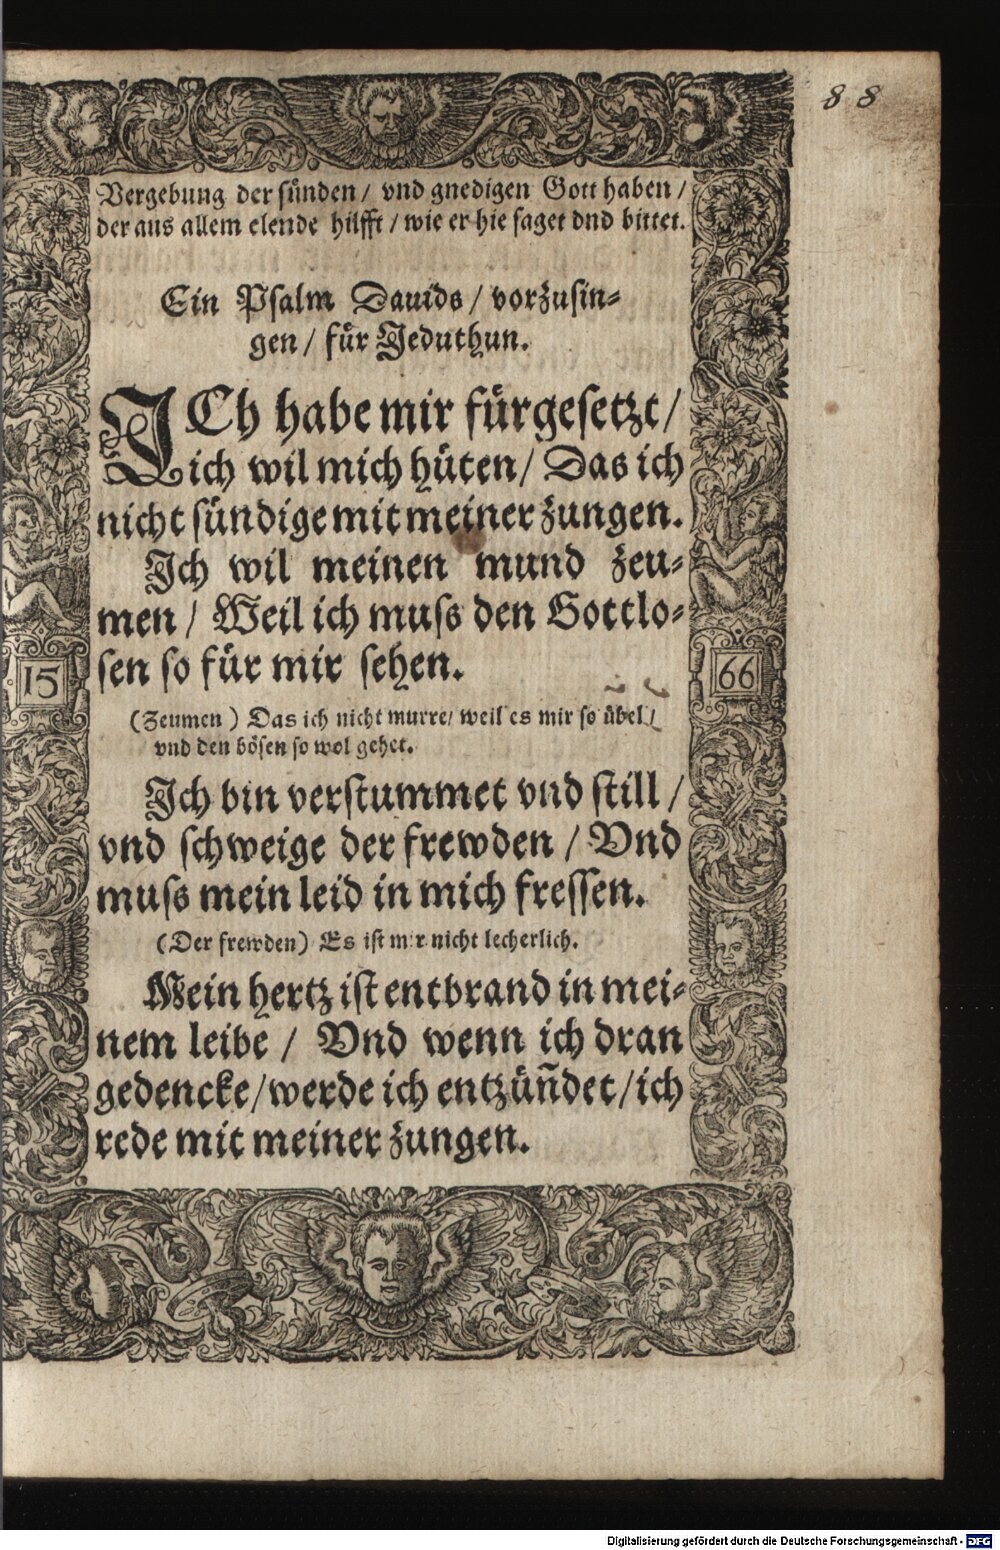 88
Vergebung der sünden / vnd gnedigen Gott haben /
der aus allem elende hilfft / wie er hie saget vnd bittet.
Ein Psalm Dauids / vorzusin-
gen / für Jeduthun.
JCh habe mir fürgesetzt /
ich wil mich hüten / Das ich
nicht sündige mit meiner zungen.
Ich wil meinen mund zeu-
men / Weil ich muss den Gottlo-
sen so für mir sehen.
15 66
(Zeumen) Das ich nicht murre / weil es mir so übel /
vnd den bösen so wol gehet.
Ich bin verstummet vnd still /
vnd schweige der frewden / Vnd
muss mein leid in mich fressen.
(Der frewden) Es ist mir nicht lecherlich.
Mein hertz ist entbrand in mei-
nem leibe / Vnd wenn ich dran
gedencke / werde ich entzün̄det / ich
rede mit meiner zungen.
Digitalisierung gefördert durch die Deutsche Forschungsgemeinschaft - DFG